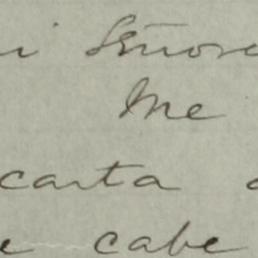 i Señore
Me
carta
e cabe